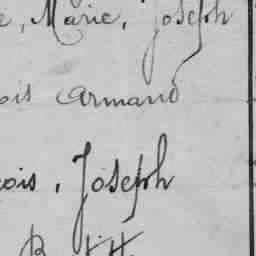 , Marie, Joseph
ois Armand
cois, Joseph